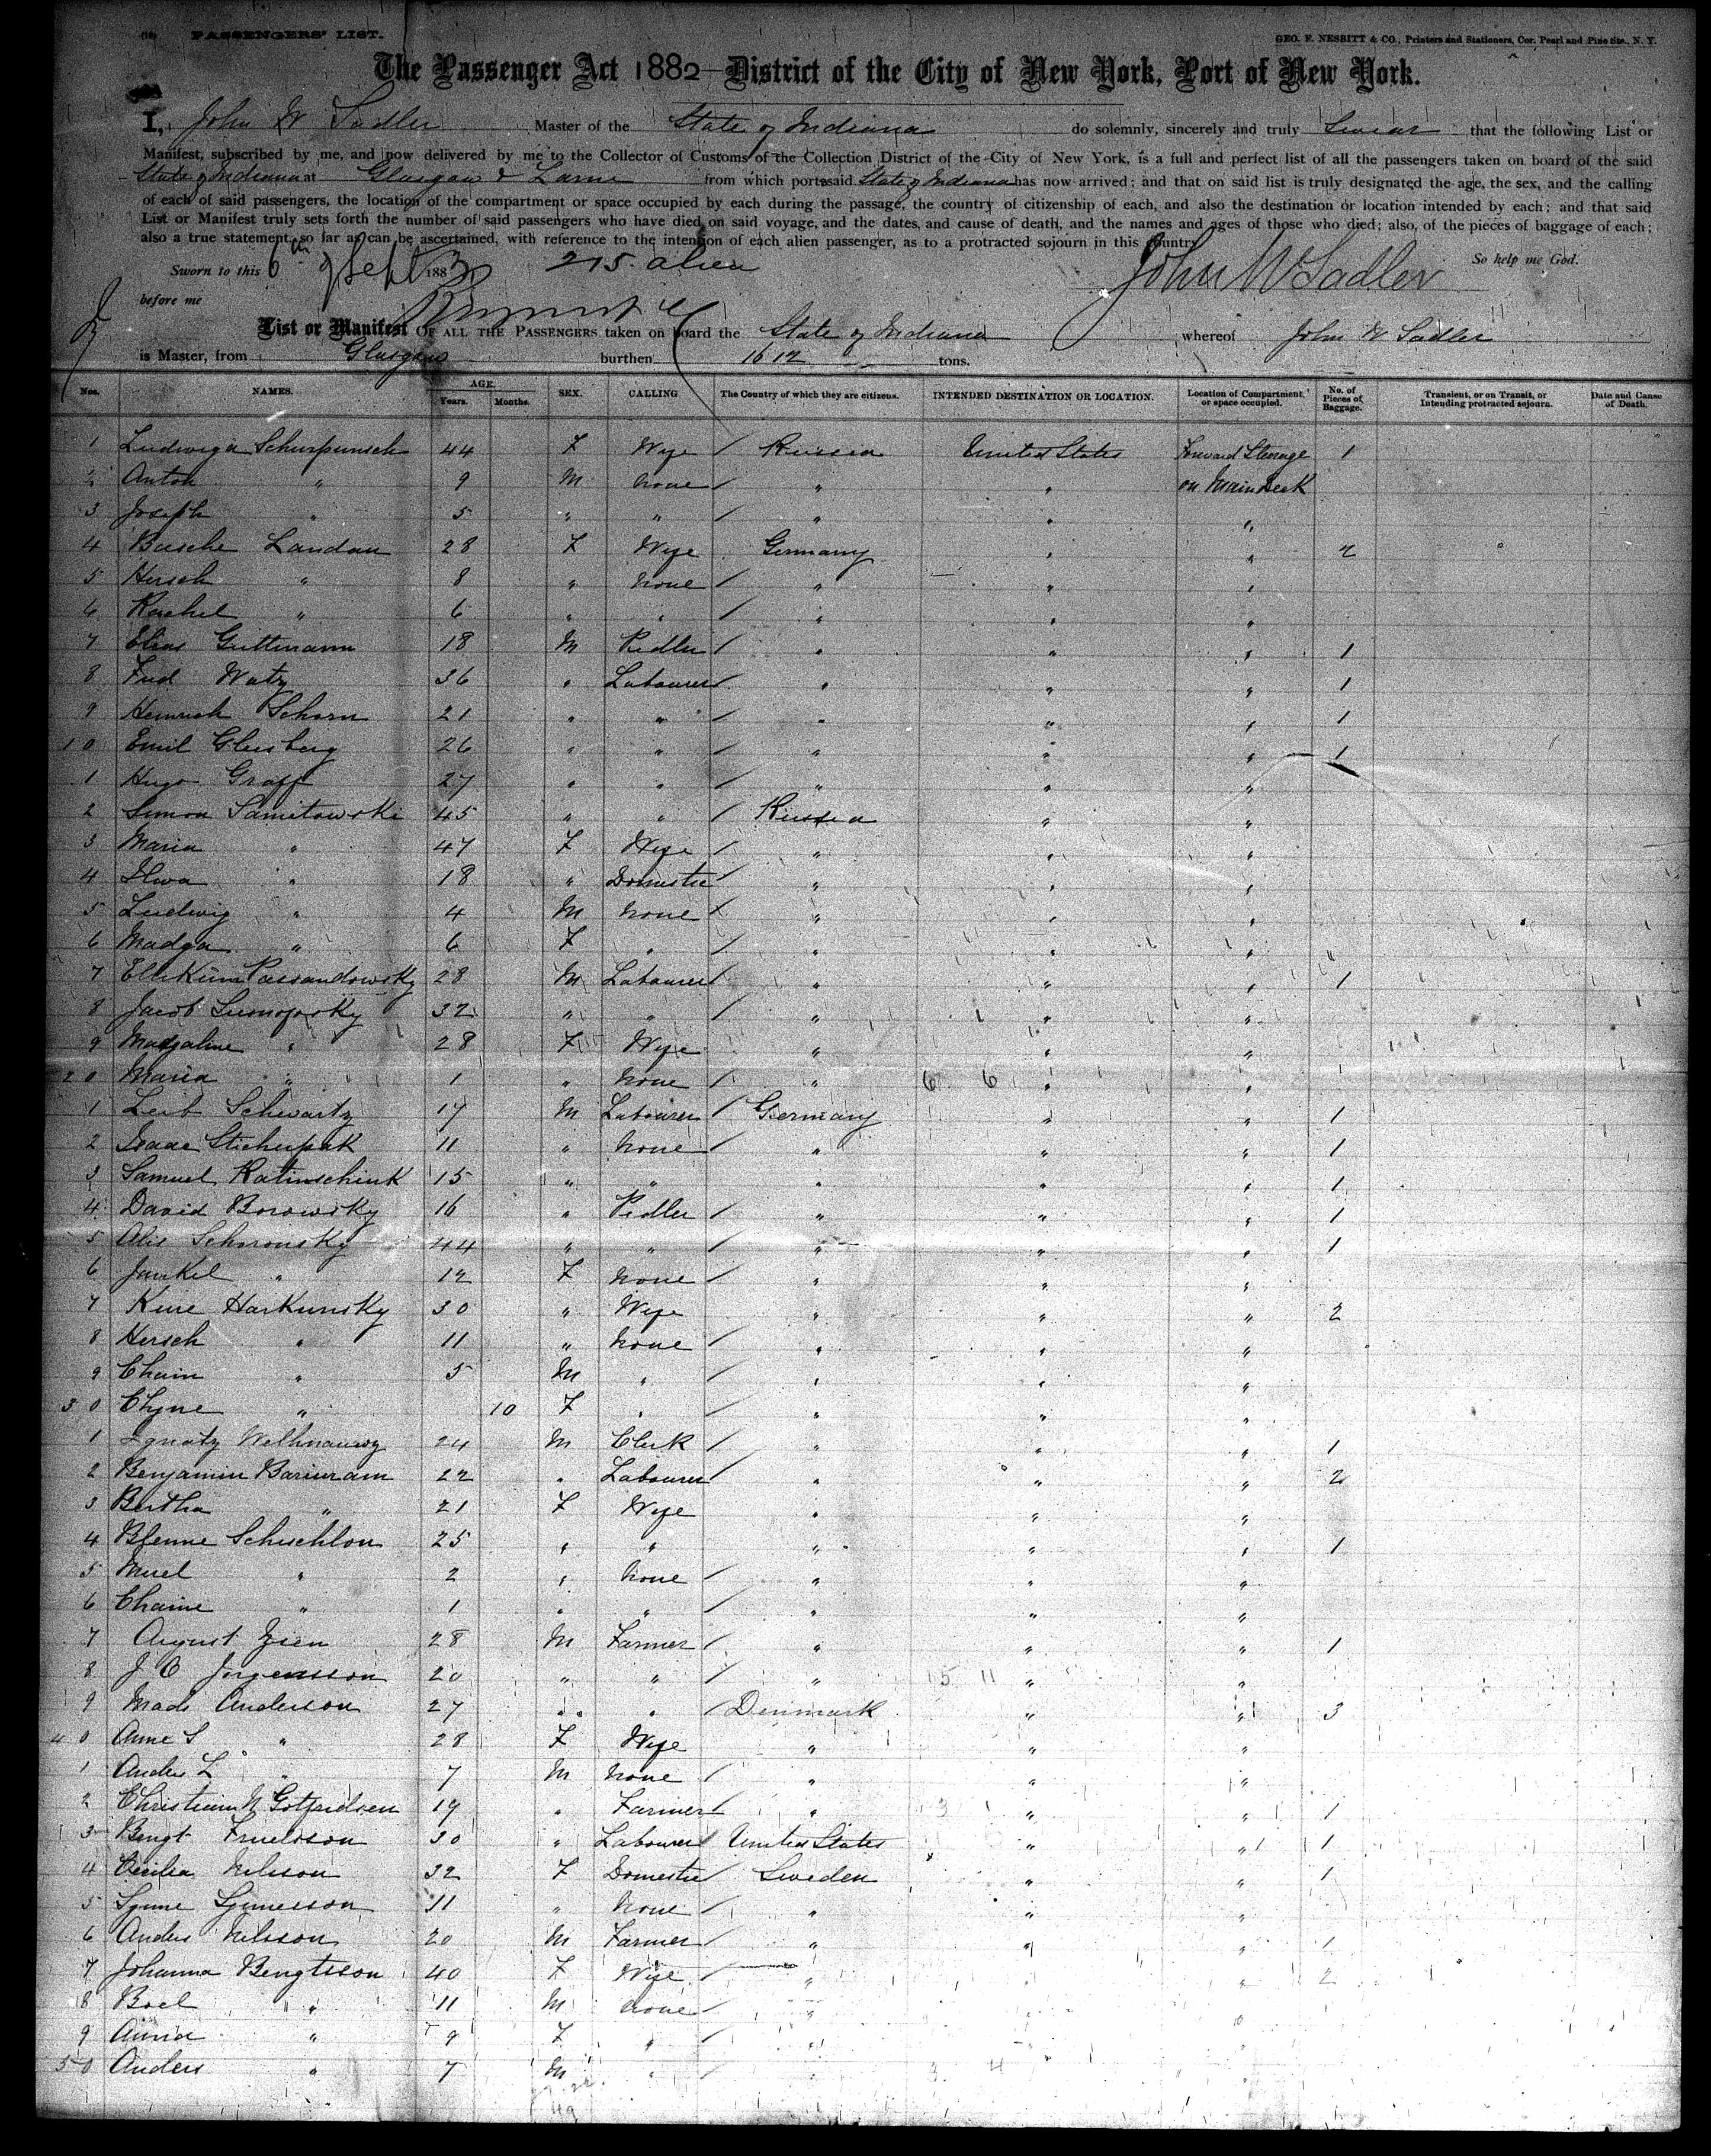 (18) PASSENGERS' LIST.
GEO. F. NESBITT & CO., Printers and Stationers, Cor. Pearl and Pine Sts., N. Y.
The Passenger Act 1882 District of the City of New York, Port of New York.
I, John W Sadler Master of the State of Indiana do solemnly, sincerely and truly Swear that the following List or
Manifest, subscribed by me, and now delivered by me to the Collector of Customs of the Collection District of the City of New York, is a full and perfect list of all the passengers taken on board of the said
State of Indiana at Glasgow & Larne from which ports said State of Indiana has now arrived; and that on said list is truly designated the age, the sex, and the calling
of each of said passengers, the location of the compartment or space occupied by each during the passage, the country of citizenship of each, and also the destination or location intended by each; and that said
List or Manifest truly sets forth the number of said passengers who have died on said voyage, and the dates, and cause of death, and the names and ages of those who died; also, of the pieces of baggage of each;
also a true statement, so far as can be ascertained, with reference to the intention of each alien passenger, as to a protracted sojourn in this country.
Sworn to this 6th of Sept 1883 215 alien John W Sadler So help me God.
before me
List or Manifest OF ALL THE PASSENGERS taken on board the State of Indiana whereof John W Sadler
is Master, from Glasgow burthen 1612 tons.
Nos. NAMES. AGE. Years. Months. SEX. CALLING The Country of which they are citizens. INTENDED DESTINATION OR LOCATION. Location of Compartment or space occupied. No. of Pieces of Baggage. Transient, or on Transit, or Intending protracted sojourn. Date and Cause of Death.
1 Ludwiga Schurpunsch 44 F Wife / Russia United States Forward Steerage 1
2 Anton " 9 M None / " " on Main Deck
3 Joseph " 5 " " / " " "
4 Basche Landau 28 F Wife Germany " " 2
5 Hersch " 8 " None / " " "
6 Rachel " 6 " " / " " "
7 Elias Guttmann 18 M Pedler / " " " 1
8 Fred Watz 36 " Labourer / " " " 1
9 Heinrich Schorn 21 " " / " " " 1
10 Emil Gleisberg 26 " " / " " " 1
1 Hugo Graff 27 " " / " " "
2 Simon Samitowski 45 " " / Russia " "
3 Maria " 47 F Wife / " " "
4 " 18 " Domestic / " " "
5 Ludwig " 4 M None / " " "
6 Madga " 6 F " / " " "
7 Passandowsky 28 M Labourer / " " " 1
8 Jacob 32 " " / " " "
9 Madjaline " 28 F Wife " " "
20 Maria " 1 " None / " 6 6 " "
1 Leib Schwartz 17 M Labourer / Germany " " 1
2 Isaac Sticherpak 11 " None / " " " 1
3 Samuel Ratinschink 15 " " " " " 1
4 David Borowsky 16 " Pedler / " " " 1
5 Alis Schoronsky 44 " " / " " " 1
6 Jankel " 12 F None / " " "
7 Kune Harkunsky 30 " Wife " " " 2
8 Hersch " 11 " None / " " "
9 Chaim " 5 M " / " " "
30 Chyne " 10 F " / " " "
1 Ignatz 24 M Clerk / " " " 1
2 Benjamin Bariuram 22 " Labourer / " " " 2
3 Bertha " 21 F Wife " " "
4 Schischlon 25 " " " " " 1
5 " 2 " None / " " "
6 Chaine " 1 " " / " " "
7 August Zien 28 M Farmer / " " " 1
8 J C Jorgensson 20 " " / " 15 11 " "
9 Mads Anderson 27 " " / Denmark " " 3
40 Anne S " 28 F Wife " " "
1 Anders L " 7 M None / " " "
2 Christian N Gotfridsen 19 " Farmer / " 3 " " 1
3 Bengt 30 " Labourer / United States " " 1
4 Cecilia Nilsson 32 F Domestic / Sweden " " 1
5 11 " None / " " "
6 Anders Nilsson 20 M Farmer / " " " 1
7 Johanna Bengtsson 40 F Wife / " " 2
8 Boel " 11 M None / "
9 Anna " 9 F " / "
50 Anders " 7 M " 3 4